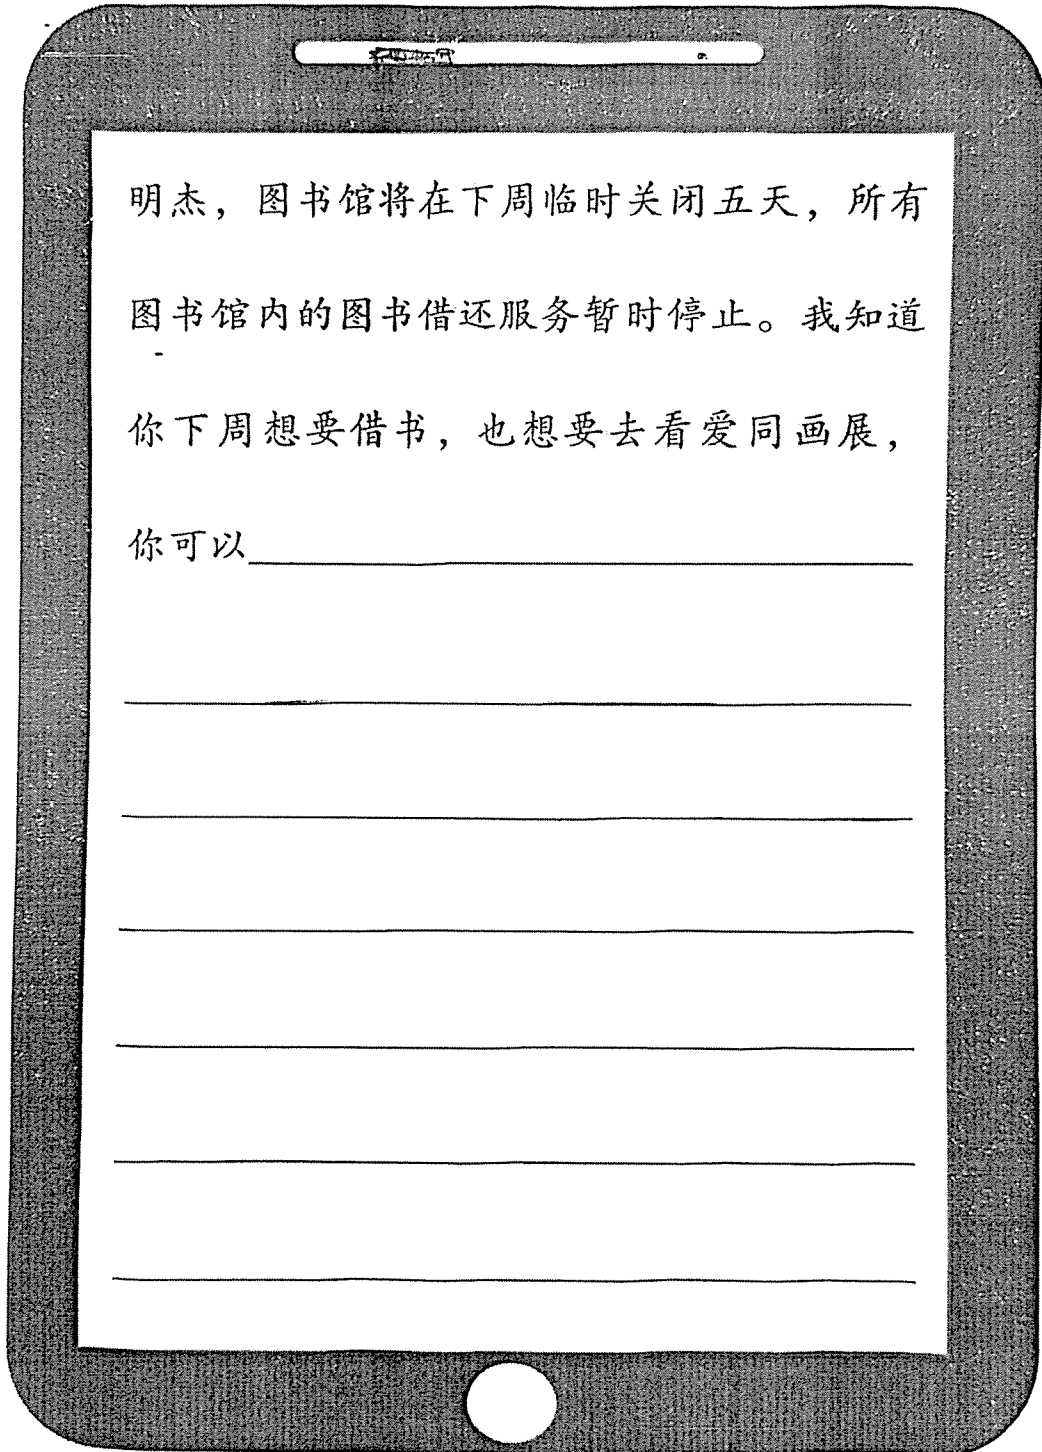 明杰，图书馆将在下周临时关闭五天，所有
图书馆内的图书借还服务暂时停止。我知道
你下周想要借书，也想要去看爱同画展，
你可以